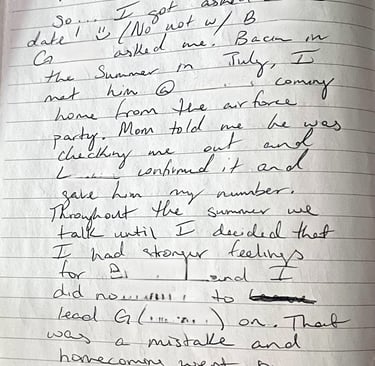 So.... I got asked
date! (No not w/ B
G asked me. Bacn in
the Summer in July, I
met him @ coming
home from the airforce
party. Mom told me he was
checking me out and
L confirmed it and
gave him my number.
Throughout the summer we
talk until I decided that
I had stronger feelings
for and I
did no to
lead G( ) on. That
was a mistake and
homecoming went